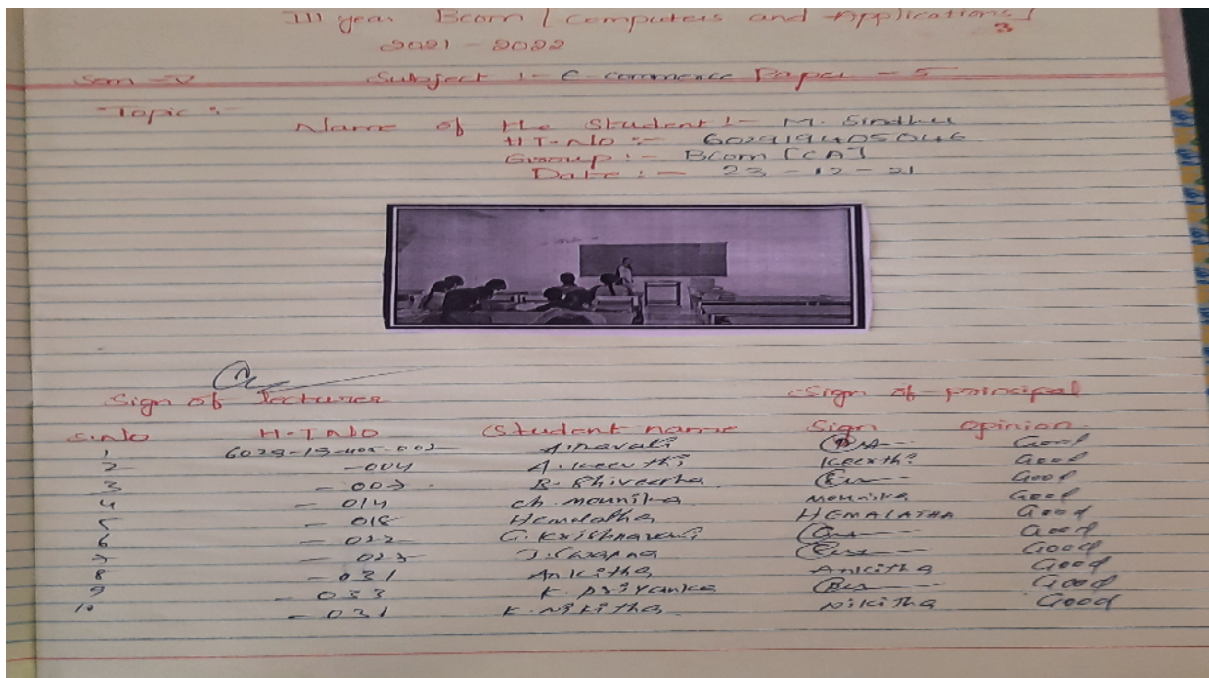 III year Bcom [Computers and Applications]
3
2021 - 2022
Sem - V Subject :- E-commerce Paper - 5
Topic :-
Name of the Student :- M. Sindhu
HT.No :- 602919405046
Group :- Bcom [CA]
Date :- 23 - 12 - 21
Sign of lecturer Sign of principal
S.No H.T.No Student name Sign opinion
1 6029-19-405-002 A.navali Good
2 -004 A. Keerthi Keerthi Good
3 - 007 Good
4 - 014 ch. mounika Mounika Good
5 - 018 Hemalatha HEMALATHA Good
6 - 022 G. Krishnaveni Good
7 - 023 J. Swapna Good
8 - 031 Ankitha Ankitha Good
9 - 033 K. Priyanka Good
10 - 031 K. Nikitha Nikitha Good